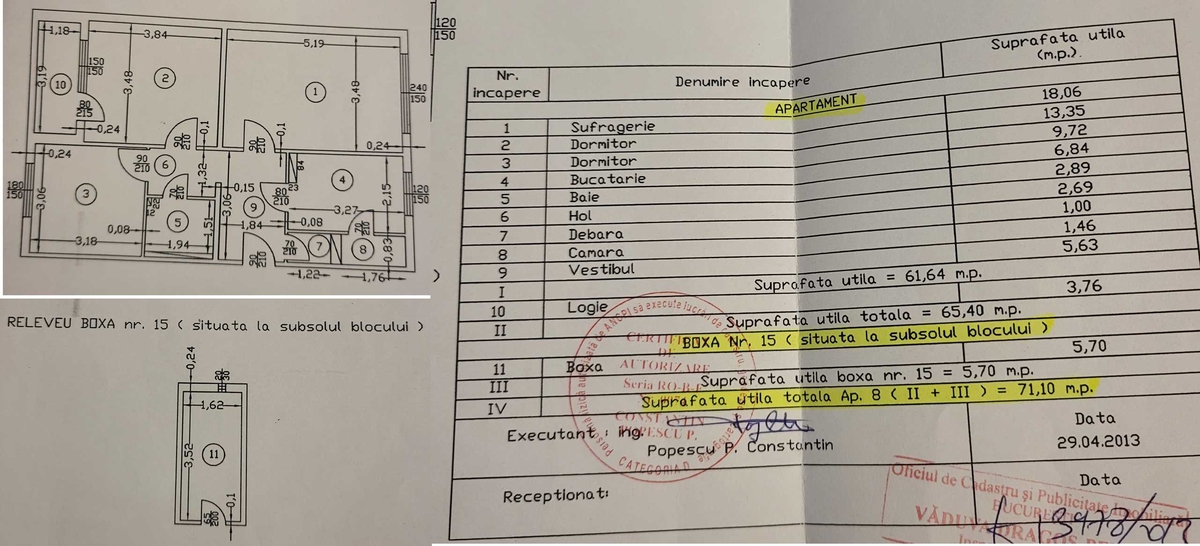 1,18
3,84
5,19
3,19
150
150
3,48
2
10
1
3,48
240
150
120
150
80
215
0,24
90
210
0,1
90
210
0,1
0,24
0,24
90
210
6
1,32
84
4
23
150
3
3,06
70
210
0,15
80
210
2,15
120
150
22
9
3,06
3,27
0,08
5
1,51
1,84
0,08
70
210
3,18
1,94
90
210
70
210
7
8
0,83
1,22
1,76
)
RELEVEU BOXA nr. 15 ( situata la subsolul blocului )
0,24
20
30
1,62
3,52
11
0,1
65
200
120
150
Nr. incapere Denumire incapere Suprafata utila (m.p.).
APARTAMENT
1 Sufragerie 18,06
2 Dormitor 13,35
3 Dormitor 9,72
4 Bucatarie 6,84
5 Baie 2,89
6 Hol 2,69
7 Debara 1,00
8 Camara 1,46
9 Vestibul 5,63
I Suprafata utila = 61,64 m.p.
10 Logie 3,76
II Suprafata utila totala = 65,40 m.p.
BOXA Nr. 15 ( situata la subsolul blocului )
11 Boxa 5,70
III Suprafata utila boxa nr. 15 = 5,70 m.p.
IV Suprafata utila totala Ap. 8 ( II + III ) = 71,10 m.p.
Executant : ing. Popescu P. Constantin
Data
29.04.2013
Receptionat:
Data
CERTIFICAT
DE
AUTORIZARE
Seria RO-B-F
CONSTANTIN
POPESCU P.
CATEGORIA D
Oficiul de Cadastru și Publicitate Imobiliară
BUCUREȘTI
VĂDUVA DRAGOS